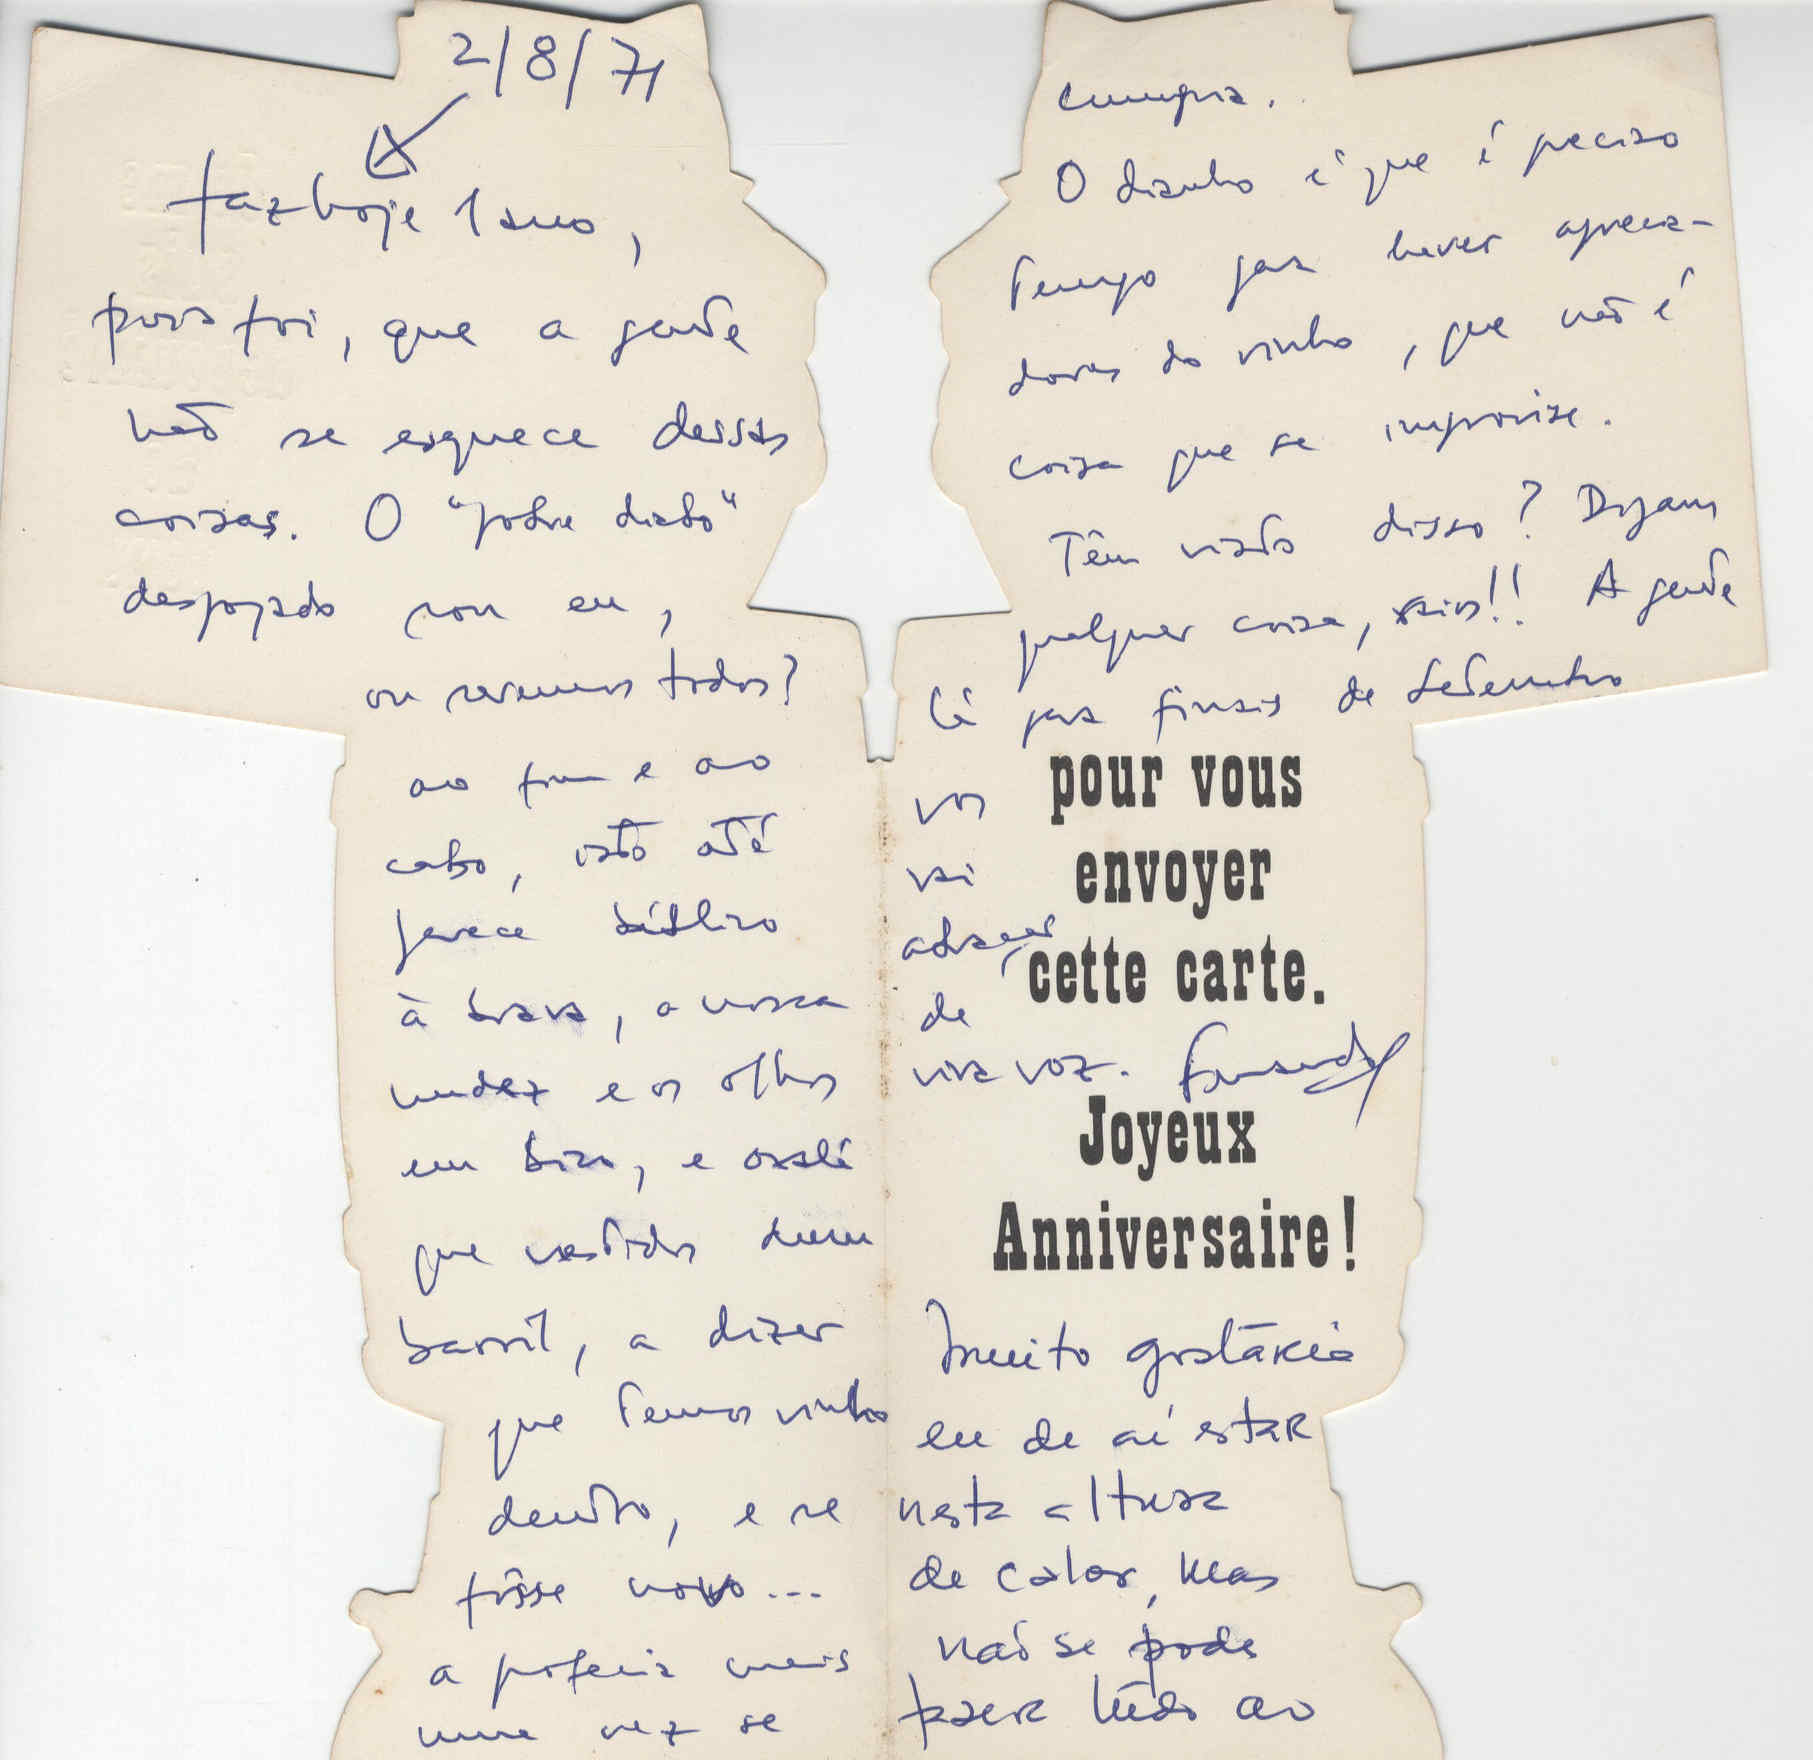 2/8/71
faz hoje 1 ano,
pois foi, que a gente
não se esquece dessas
coisas. O "pobre diabo"
despojado sou eu,
ou seremos todos?
ao fim e ao
cabo, isto até
parece bíblico
à brava, a nossa
nudez e os olhos
em bico, e oxalá
que vestidos dum
barril, a dizer
que temos vinho
dentro, e se
fôsse novo...
a profecia mais
uma vez se
cumpria.
O dianho é que é preciso
tempo para haver aprecia-
dores do vinho, que não é
coisa que se improvise.
Têm visto disso? Digam
qualquer coisa, !! A gente
lá para finais de Setembro
vos
vai
abraçar
de
viva voz. Fernando
pour vous
envoyer
cette carte.
Joyeux
Anniversaire!
Muito gostaria
eu de aí estar
nesta altura
de calor, mas
não se pode
fazer tudo ao